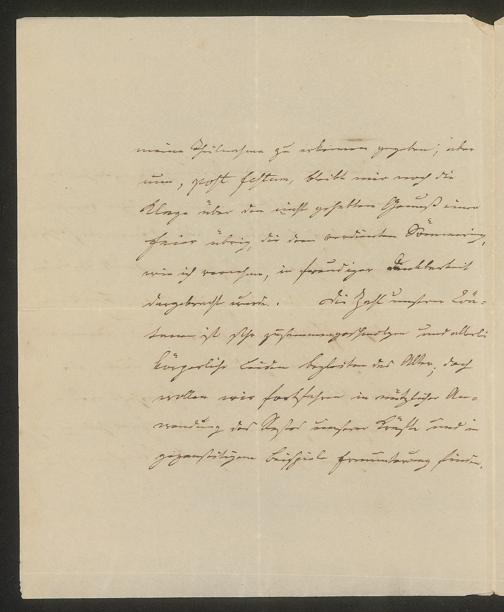 meine Theilnahme zu erkennen gegeben; aber
nun, post festum, bleibt mir noch die
Klage über den nicht gehabten Genuß einer
Feier übrig, die dem verdienten Sömmering,
wie ich vernehme, in freudiger Dankbarkeit
dargebracht wurde. Die Zahl unserer
ist sehr zusammengeschmolzen und allerlei
körperliche Leiden begleiten das Alter, doch
wollen wir fortfahren in nützlicher An-
wendung des Restes unserer Kräfte und in
gegenseitigem Beispiele Ermunterung finden.